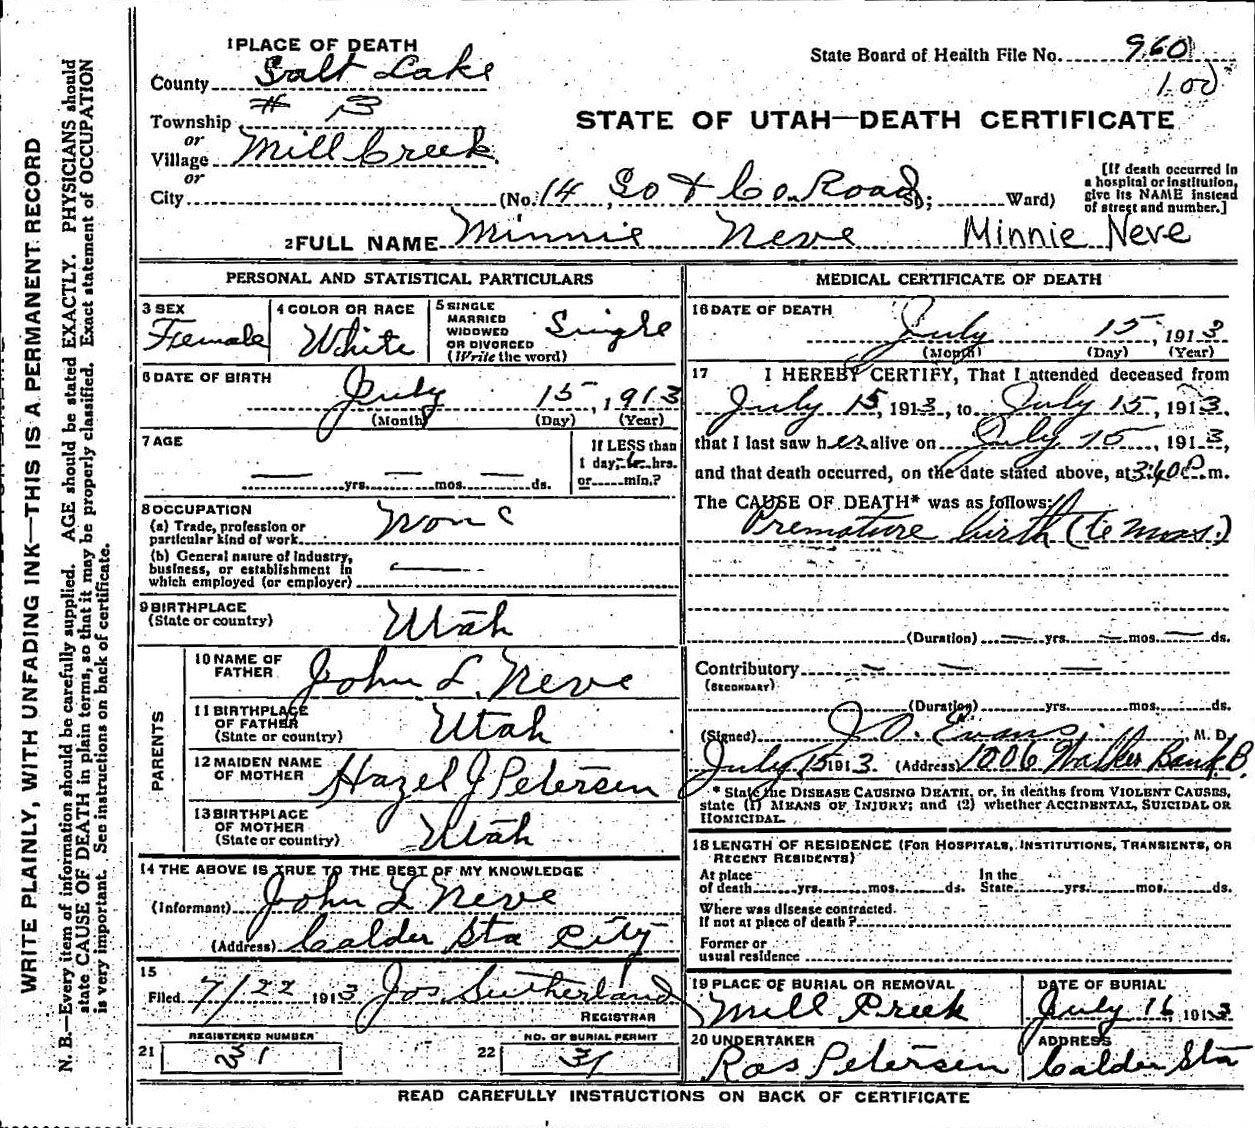 WRITE PLAINLY, WITH UNFADING INK—THIS IS A PERMANENT RECORD
N. B.—Every item of information should be carefully supplied. AGE should be stated EXACTLY. PHYSICIANS should
state CAUSE OF DEATH in plain terms, so that it may be properly classified. Exact statement of OCCUPATION
is very important. See instructions on back of certificate.
1 PLACE OF DEATH
County Salt Lake
Township # 3
or
Village Mill Creek
or
City
State Board of Health File No. 960
100
STATE OF UTAH—DEATH CERTIFICATE
(No. 14 , So & Co. Road St; Ward)
[If death occurred in
a hospital or institution,
give its NAME instead
of street and number.]
2 FULL NAME Minnie Neve Minnie Neve
PERSONAL AND STATISTICAL PARTICULARS
3 SEX
Female
4 COLOR OR RACE
White
5 SINGLE
MARRIED
WIDOWED
OR DIVORCED
(Write the word)
Single
6 DATE OF BIRTH
July 15, 1913
(Month) (Day) (Year)
7 AGE
— yrs. — mos. — ds.
If LESS than
1 day, hrs.
or min.?
8 OCCUPATION
(a) Trade, profession or
particular kind of work None
(b) General nature of industry,
business, or establishment in
which employed (or employer) —
9 BIRTHPLACE
(State or country)
Utah
PARENTS
10 NAME OF
FATHER
John L. Neve
11 BIRTHPLACE
OF FATHER
(State or country)
Utah
12 MAIDEN NAME
OF MOTHER
Hazel J Petersen
13 BIRTHPLACE
OF MOTHER
(State or country)
Utah
14 THE ABOVE IS TRUE TO THE BEST OF MY KNOWLEDGE
(Informant) John L Neve
(Address) Calder Sta City
15
Filed 7/22 1913 Jos. Sutherland
REGISTRAR
REGISTERED NUMBER
21 31
NO. OF BURIAL PERMIT
22 31
MEDICAL CERTIFICATE OF DEATH
16 DATE OF DEATH
July 15, 1913
(Month) (Day) (Year)
17 I HEREBY CERTIFY, That I attended deceased from
July 15, 1913, to July 15, 1913,
that I last saw her alive on July 15, 1913,
and that death occurred, on the date stated above, at 3:40 P. m.
The CAUSE OF DEATH* was as follows:
Premature birth (6 mos.)
(Duration) — yrs. — mos. — ds.
Contributory — — —
(SECONDARY)
(Duration) yrs. mos. ds.
(Signed) J. O. Evans, M. D.
July 15 1913. (Address) 1006 Walker Bank B.
* State the DISEASE CAUSING DEATH, or, in deaths from VIOLENT CAUSES,
state (1) MEANS OF INJURY; and (2) whether ACCIDENTAL, SUICIDAL OR
HOMICIDAL.
18 LENGTH OF RESIDENCE (FOR HOSPITALS, INSTITUTIONS, TRANSIENTS, OR
RECENT RESIDENTS)
At place
of death yrs. mos. ds.
In the
State yrs. mos. ds.
Where was disease contracted.
If not at place of death?
Former or
usual residence
19 PLACE OF BURIAL OR REMOVAL
Mill Creek
DATE OF BURIAL
July 16, 1913
20 UNDERTAKER
Ras Petersen
ADDRESS
Calder Sta
READ CAREFULLY INSTRUCTIONS ON BACK OF CERTIFICATE